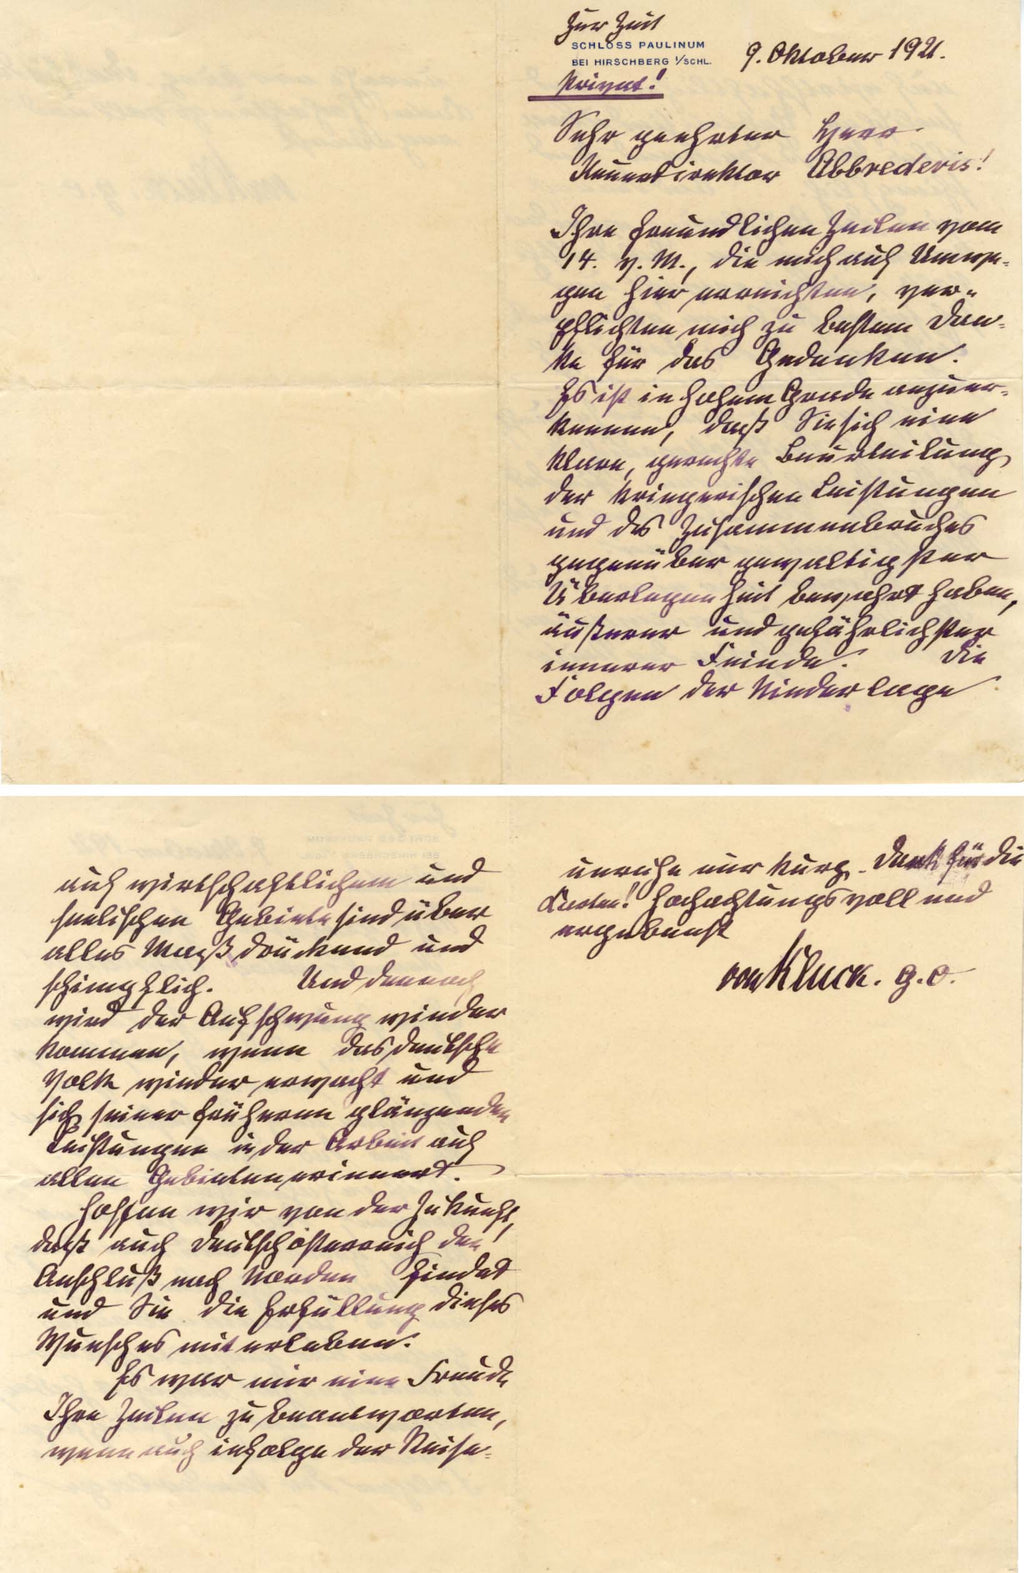 Zur Zeit
SCHLOSS PAULINUM
BEI HIRSCHBERG I/SCHL.
9. Oktober 1921.
Privat!
Sehr geehrter Herr
Steuerdirektor Abbrederis!
Ihre freundlichen Zeilen vom
14. v. M., die mich auf Umwe-
gen hier erreichten, ver-
pflichten mich zu bestem Dan-
ke für das Gedenken.
Es ist in hohem Grade anzuer-
kennen, daß Sie sich eine
klare, gerechte Beurteilung
der kriegerischen Leistungen
und des Zusammenbruches
gegenüber gewaltigster
Überlegenheit bewahrt haben,
äußerer und gefährlichster
innerer Feinde. Die
Folgen der Niederlage
auf wirtschaftlichem und
seelischen Gebiete sind über
alles Maß drückend und
schimpflich. Und dennoch
wird der Aufschwung wieder
kommen, wenn das deutsche
Volk wieder erwacht und
sich seiner früheren glänzenden
Leistungen in der Arbeit auf
allen Gebieten erinnert.
Hoffen wir von der Zukunft,
daß auch Deutschösterreich den
Anschluß nach Norden findet
und Sie die Erfüllung dieses
Wunsches miterleben.
Es war mir eine Freude
Ihre Zeilen zu beantworten,
wenn auch infolge der Reise-
unruhe nur kurz. Dank für die
Karten! Hochachtungsvoll und
ergebenst
von Kluck. G.O.